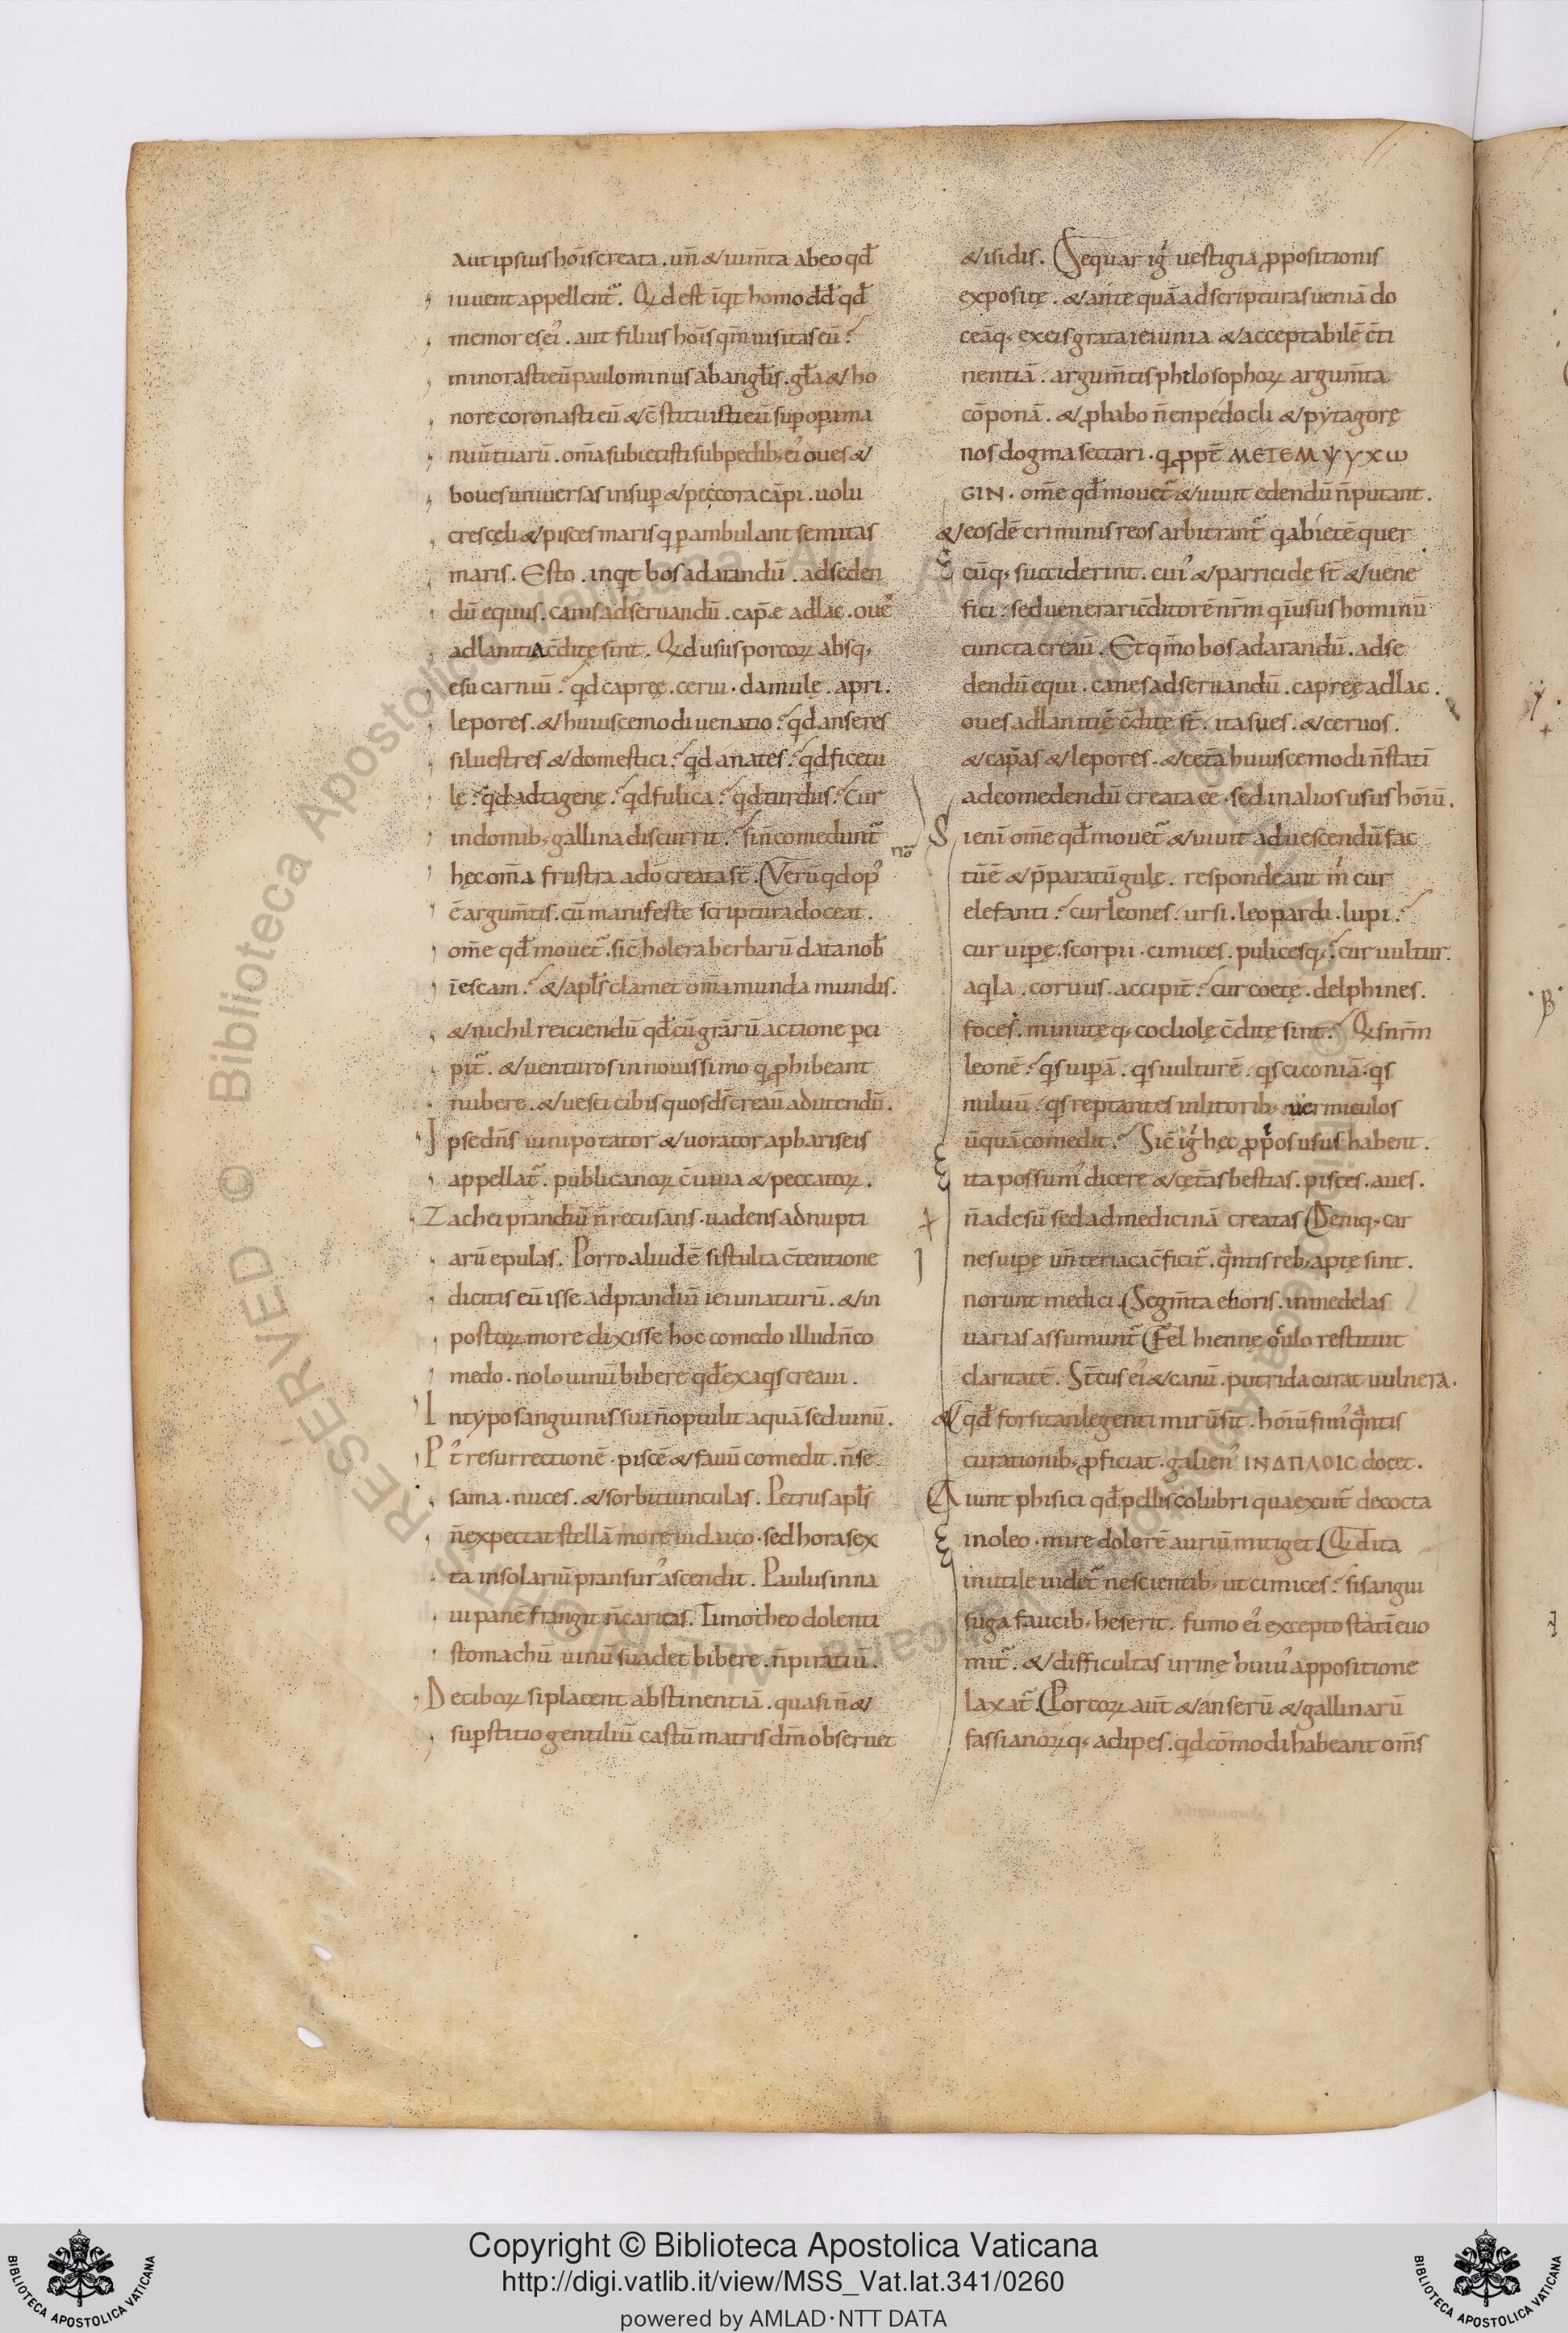 aut ipsius hoīs creata . un̄ & ium̄ta ab eo qđ
iuvent appellent᷑ . Qđ est īqt homo dđ qđ
memor es ei᾽ . aut filius hoīs qm̄ uisitas eū ?
minorasti eū paulominus ab angłis . głia & ho
nore coronasti eū & c̄stituisti eū sup opa ma
nuū tuarū . om̄a subiecisti sub pedib; ei᾽ oues &
boues uniuersas insup & peccora cāpi . uolu
cres cęli & pisces maris q ꝑambulant semitas
maris . Esto . inqt bos ad arandū . ad seden
dū equus . canis ad seruandū . cap̄e ad lac . oue᾽
ad lanitia c̄ditę sint . Qd usus porcoꝝ absq;
esu carniū ? qd capreę . cerui . damulę . apri .
lepores . & huiuscemodi uenatio ? qd anseres
siluestres & domestici ? qd anates ? qd ficetu
lę ? qd adtagenę ? qd fulica ? qd turdus ? Cur
in domib; gallina discurrit ? si n̄ comedunt᷑
hęc om̄a frustra a dō creata st̄ . Verū qd op᾽
ē argum̄tis . cū manifeste scriptura doceat .
om̄e qđ mouet᷑ . sic̄ holera herbarū data nob̄
ī escam ? & apłs clamet om̄a munda mundis .
& nichil reiciendū qđ cū grārū actione ꝑci
pit᷑ . & uenturos in nouissimo q ꝓhibeant
nubere . & uesci cibis quos ds̄ creauī ad utendū .
Ipse dn̄s uini potator & uorator a phariseis
appellat᷑ . publicanoꝝ c̄uiua & peccatoꝝ .
Zachei prandiū n̄ recusans . uadens ad nupti
arū epulas . Porro aliud ē si stulta c̄tentione
dicitis eū isse ad prandiū ieiunaturū . & in
postoꝝ more dixisse hoc comedo illud n̄ co
medo . nolo uinū bibere qđ ex aqs creaui .
In typo sanguinis sui n̄ optulit aquā sed uinū .
P᾽t resurrectionē . piscē & fauū comedit . n̄ se
sama . nuces . & sorbitiunculas . Petrus apłs
n̄ expectat stellā more iudaico . sed hora sex
ta in solariū pransur᾽ ascendit . Paulus in na
ui panē frangit n̄ caricas . Timotheo dolenti
stomachū uinū suadet bibere . n̄ piratiū .
De ciboꝝ si placent abstinentiā . quasi n̄ &
supstitio gentiliū castū matris dm̄ obseruet
nō
& isidis . Sequar ig᷑ uestigia ꝓpositionis
expositę . & ante quā ad scripturas ueniā do
ceāq; ex eis grata ieiunia & acceptabilē c̄ti
nentiā . argum̄tis philosophoꝝ argum̄ta
cōponā . & ꝓbabo n̄ enpedocli & pytagorę
nos dogma sectari . q ꝓpt̄ ΜΕΤΕΜΨΥΧω
GIN . om̄e qđ mouet᷑ & uiuit edendū n̄ putant .
& eosdē criminis reos arbitrant᷑ q abietē quer
cūq; succiderint . cui᾽ & parricidę st̄ & uene
fici . sed uenerari c̄ditorē nr̄m q ī usus hominū
cuncta creauī . Et qm̄o bos ad arandū . ad se
dendū equi . canes ad seruandū . capreę ad lac .
oues ad lanitiē c̄ditę st̄ . ita sues . & ceruos .
& cap̄as & lepores . & cet̄a huiuscemodi n̄ statī
ad comedendū creata eē . sed in alios usus hoīū .
Si enī om̄e qđ mouet᷑ & uiuit ad uescendū fac
tū ē & p̄paratū gulę . respondeant m᷑ cur
elefanti ? cur leones . ursi . leopardi . lupi ?
cur uipę . scorpii . cimices . pulicesq; ? cur uultur .
aqla . coruus . accipit̄ ? cur coetę . delphines .
foces . minutęq; cocliolę c̄ditę sint ? Qs nr̄m
leonē ? qs uipā . qs uulturē . qs ciconiā . qs
miluū . qs reptantes in litorib; uermiculos
ūquā comedit ? Sic̄ ig᷑ hęc ꝓpos usus habent .
ita possum᾽ dicere & cęt̄as bestias . pisces . aues .
n̄ ad esū sed ad medicinā creatas Deniq; car
nes uipę un̄ teriaca c̄ficit᷑ . qͣntis reb; aptę sint .
norunt medici . Segm̄ta eboris . in medelas
uarias assumunt᷑ Fel hiennę oculo restituit
claritatē . St̄cus ei᾽ & canū . putrida curat uulnera .
& qđ forsitan legenti mirū sit . hoīū fim᾽ qͣntis
curationib; ꝓficiat . galien᾽ ΙΝΔΠΛΟΙC docet .
Aiunt phisici qđ pellis colubri qua exuit᷑ decocta
in oleo . mire dolorē auriū mitiget . Qd ita
inutile uidet᷑ nescientib; ut cimices ? si sangui
suga faucib; heserit . fumo ei᾽ excepto statī euo
mit᷑ . & difficultas urinę huiu᾽ appositione
laxat᷑ . Porcoꝝ aut̄ & anserū & gallinarū
fassianoꝝq; adipes . qd cōmodi habeant om̄s
RESERVED © Biblioteca Apostolica Vaticana
Copyright © Biblioteca Apostolica Vaticana
http://digi.vatlib.it/view/MSS_Vat.lat.341/0260
powered by AMLAD·NTT DATA
BIBLIOTECA APOSTOLICA VATICANA
BIBLIOTECA APOSTOLICA VATICANA